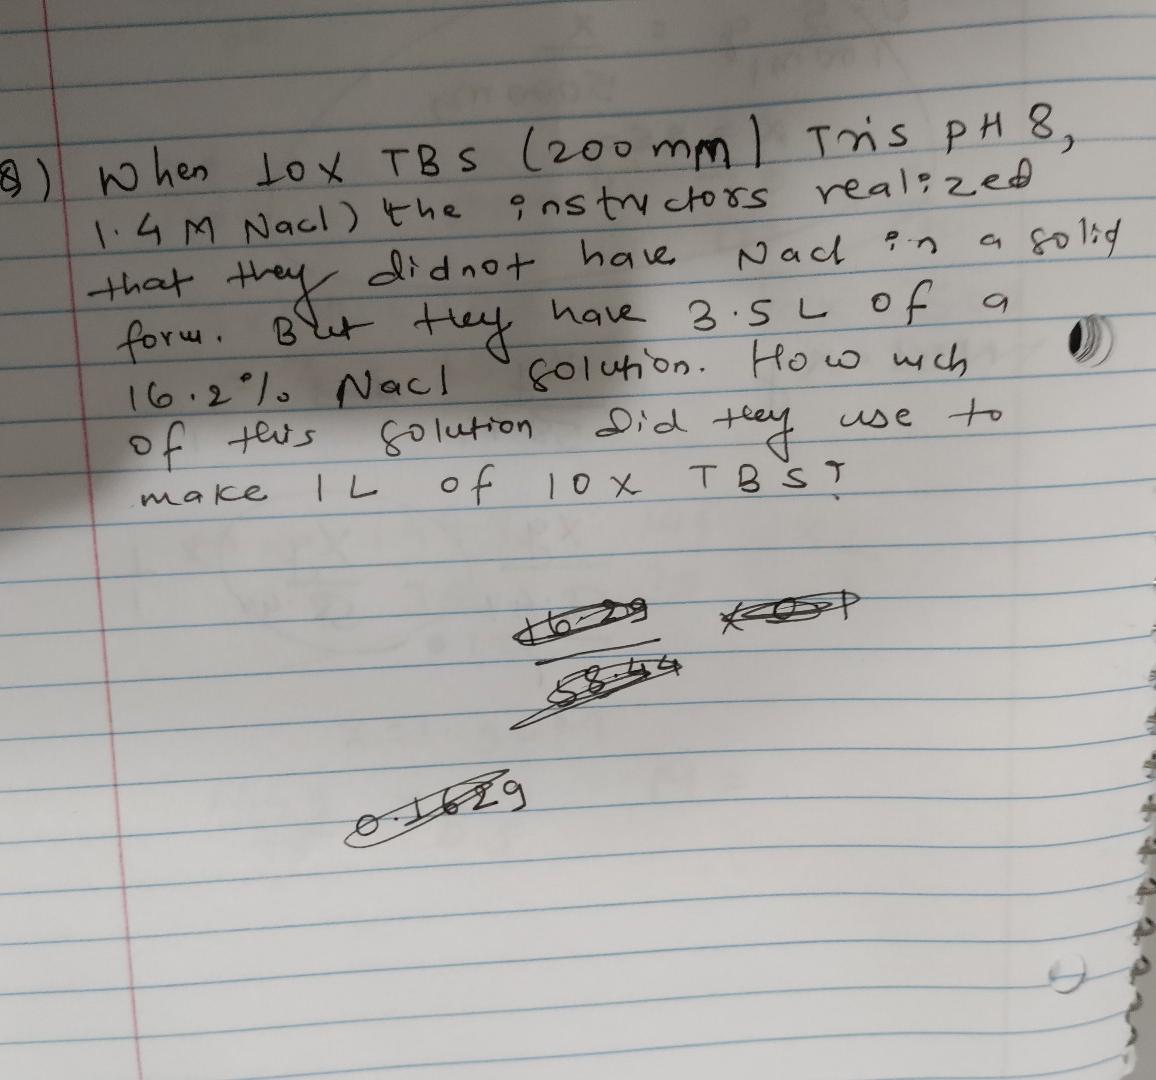 8) When 10X TBS (200 mm) Tris pH 8,
1.4 M Nacl) the instructors realized
that they didnot have Nacl in a solid
form. But they have 3.5 L of a
16.2% Nacl solution. How uch
of this solution did they use to
make 1 L of 10 x TBS?
16.29
58.44
0.1629